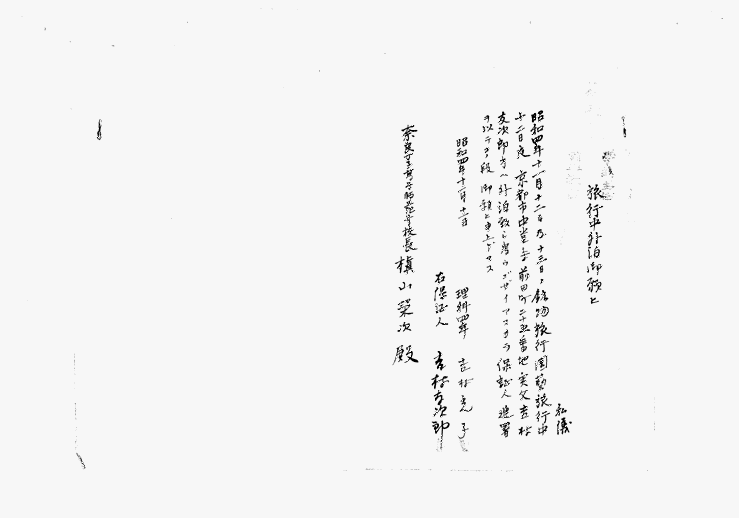 旅行中外泊御願ヒ
私儀
昭和四年十一月十二日乃十三日ノ鉱物旅行園藝旅行中
十二日夜 京都市中堂寺前田町二十五番地実父吉村
友次郎方ヘ外泊致シ度ウゴザイマスカラ保証人連署
ヲ以テコノ段御願ヒ申上ゲマス
昭和四年十一月十一日
理科四年 吉村 子
右保証人 吉村友次郎
奈良女子高等師範学校長 槙山榮次殿